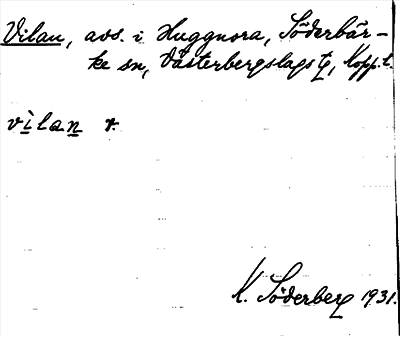 Vilan, avs. i Huggnora, Söderbär-
ke sn, Västerbergslags tg, Kopp. l.
vilan v.
K. Söderberg 1931.